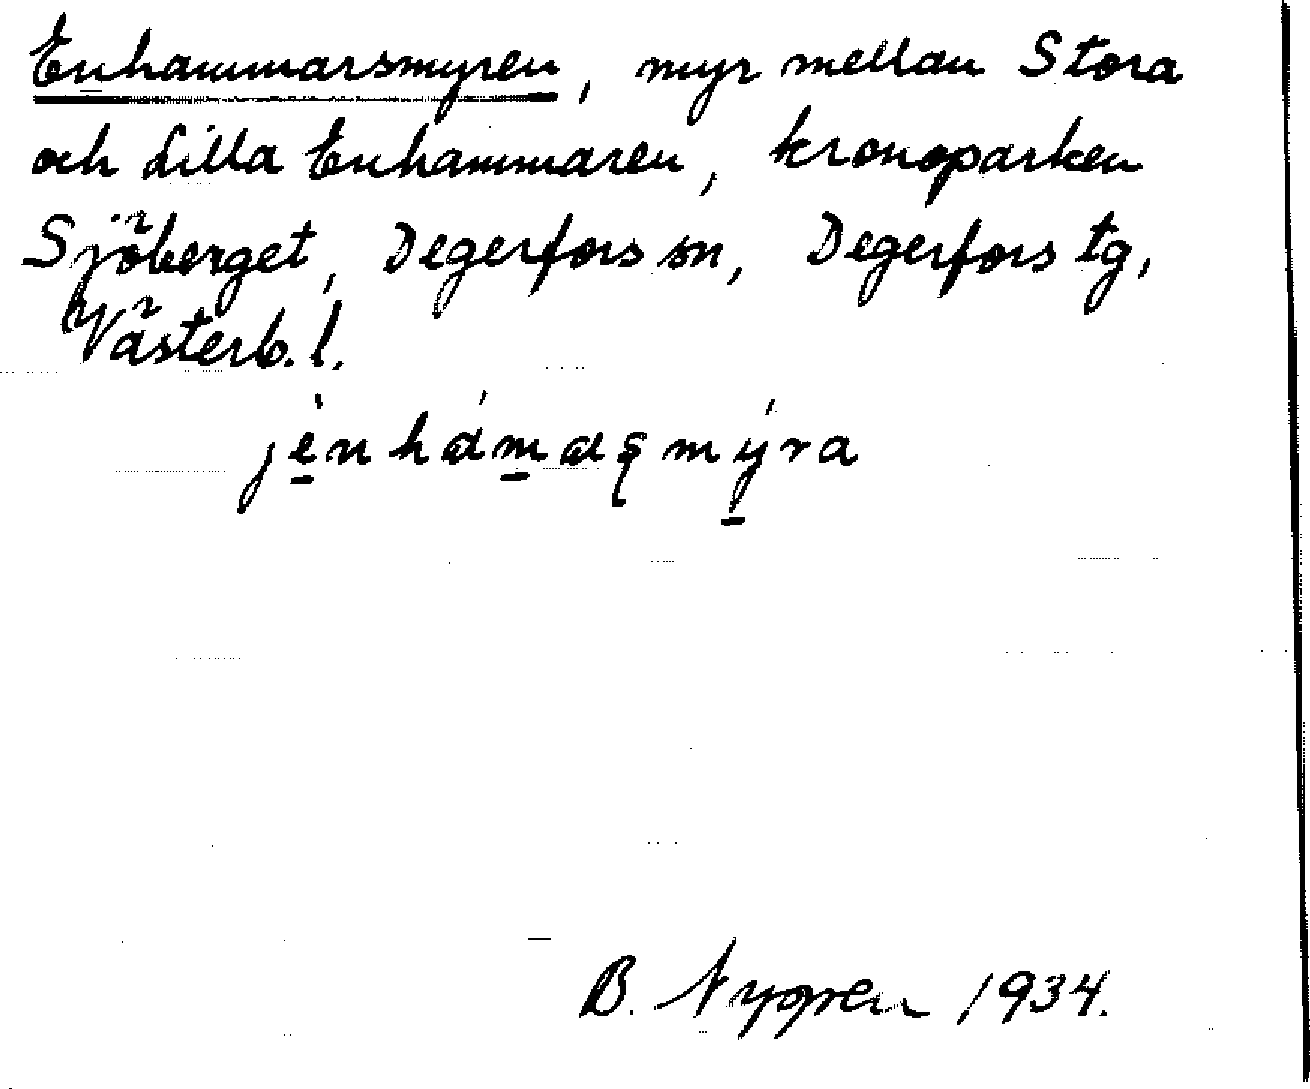 Enhammarsmyren, myr mellan Stora
och Lilla Enhammaren, kronoparken
Sjöberget, Degerfors sn, Degerfors tg,
Västerb. l.
jènhámaʂmýra
B. Nygren 1934.